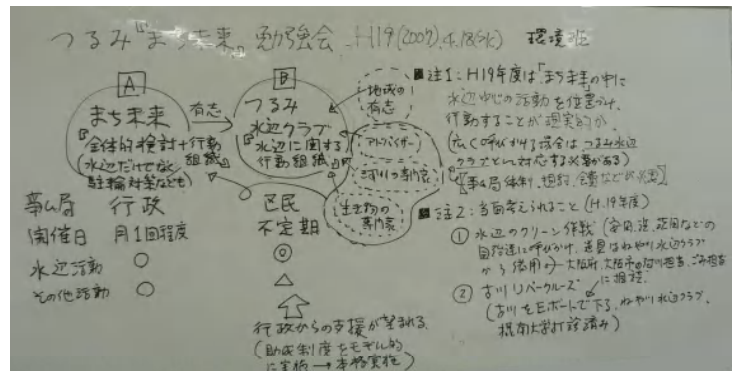 つるみ『まち未来』勉強会 H19(2007).4.18(水) 環境班
A
まち未来
『全体的検討+行動組織』
(水辺だけでなく
駐輪対策なども)
有志
B
つるみ
水辺クラブ
『水辺に関する
行動組織』
地域の
有志
アドバイザー
まちづくり専門家
生き物の
専門家
事ム局 行政 区民
開催日 月1回程度 不定期
水辺活動 ○ ◎
その他活動 ○ △
行政からの支援が望まれる
(助成制度をモデル的
に実施→本格実施)
■注1:H19年度は「まち未来」の中に
水辺中心の活動を位置づけ、
行動することが現実的か
(広く呼びかける場合はつるみ水辺
クラブとして対応する必要がある)
【事ム局体制、規約、会費などが必要】
■注2:当面考えられること(H.19年度)
① 水辺のクリーン作戦
自治連に呼びかけ、道具はねやがわ水辺クラブ
から借用→大阪府、大阪市の河川担当、ごみ担当
に相談
② 古川リバークルーズ
(古川をEボートで下る、ねやがわ水辺クラブ、
摂南大学打診済み)